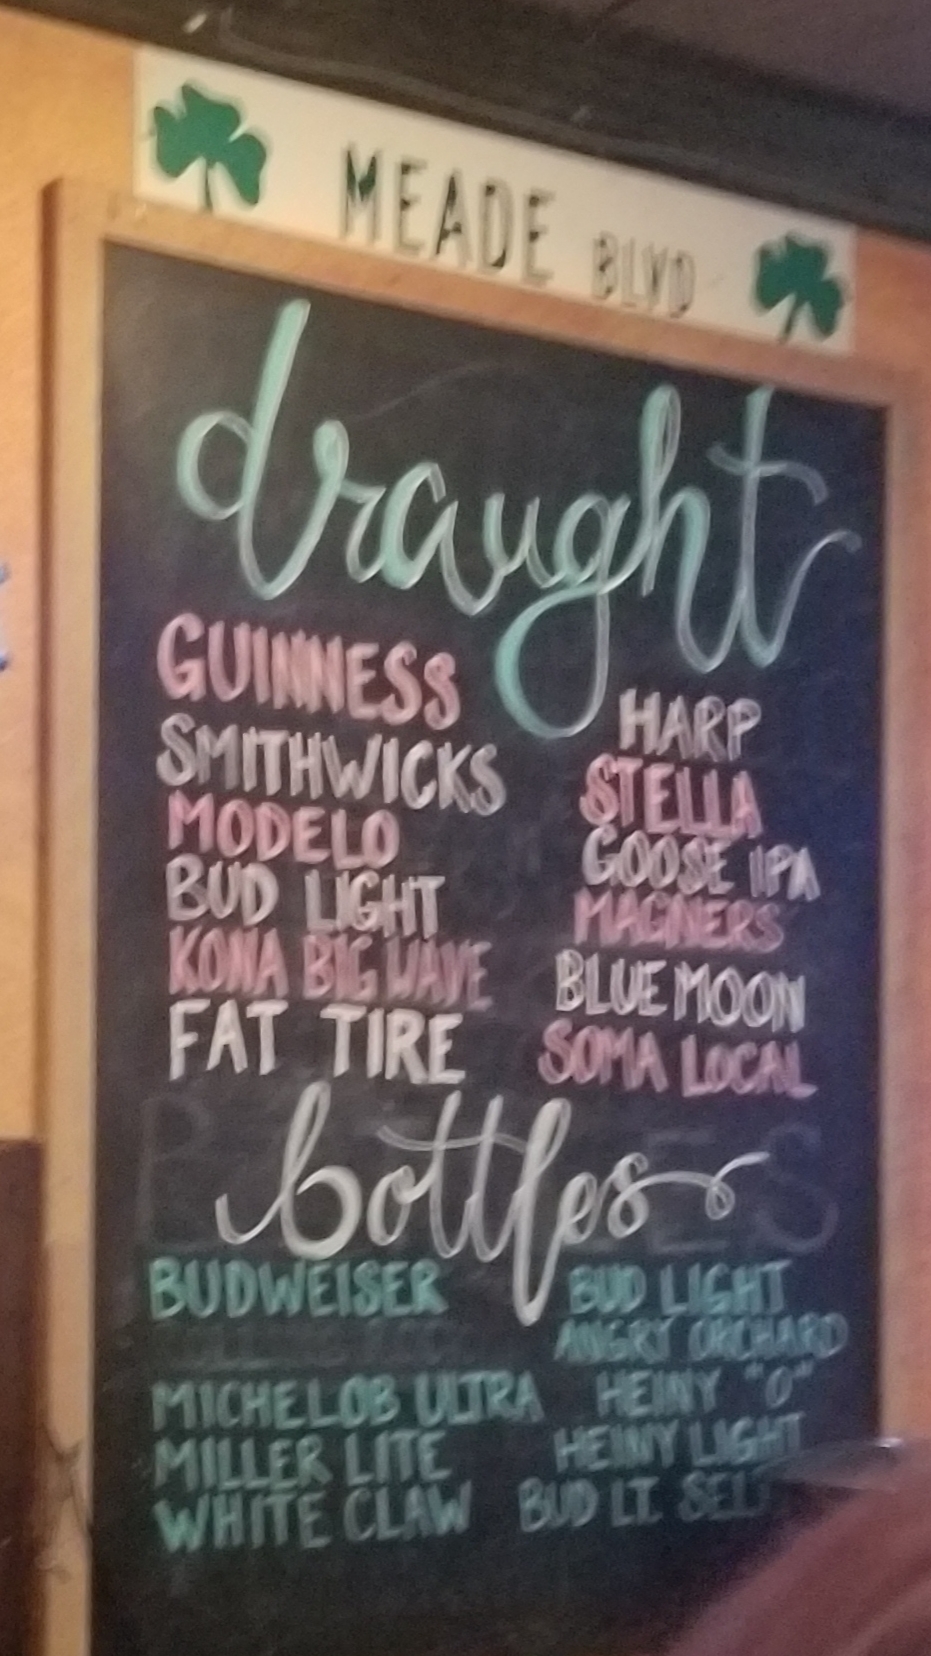 MEADE BLVD
draught
GUINNESS
SMITHWICKS
MODELO
BUD LIGHT
KONA BIG WAVE
FAT TIRE
HARP
STELLA
GOOSE IPA
MAGNERS
BLUE MOON
SOMA LOCAL
bottles
BUDWEISER
MICHELOB ULTRA
MILLER LITE
WHITE CLAW
BUD LIGHT
ANGRY ORCHARD
HEINY "O"
HEINY LIGHT
BUD LT.